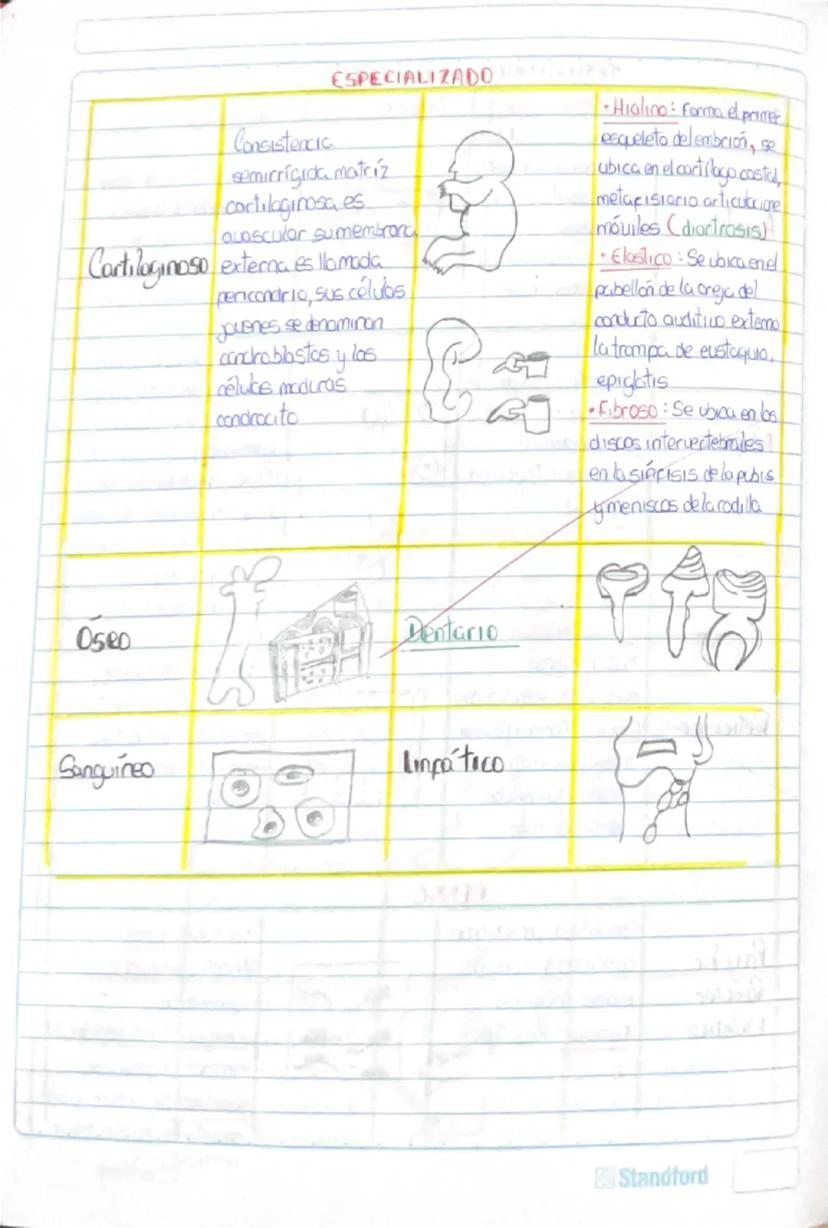 ESPECIALIZADO
Cartilaginoso
Consistencia
semirrígida matríz
cartilaginosa es
avascular su membrana
externa es llamada
pericondrio, sus células
jovenes se denominan
condroblastos y las
células maduras
condrocito
• Hialino: Forma el primer
esqueleto del embrión, se
ubica en el cartílago costal,
metafisiario articulacione
móviles (diartrosis)
• Elastico: Se ubica en el
pabellón de la oreja del
conducto auditivo externo
la trompa de eustaquio,
epiglotis
• Fibroso: Se ubica en los
discos intervertebrales
en la sinfisis de la pubis
y meniscos de la rodilla
Óseo
Dentario
Sanguíneo
Linfático
Standford